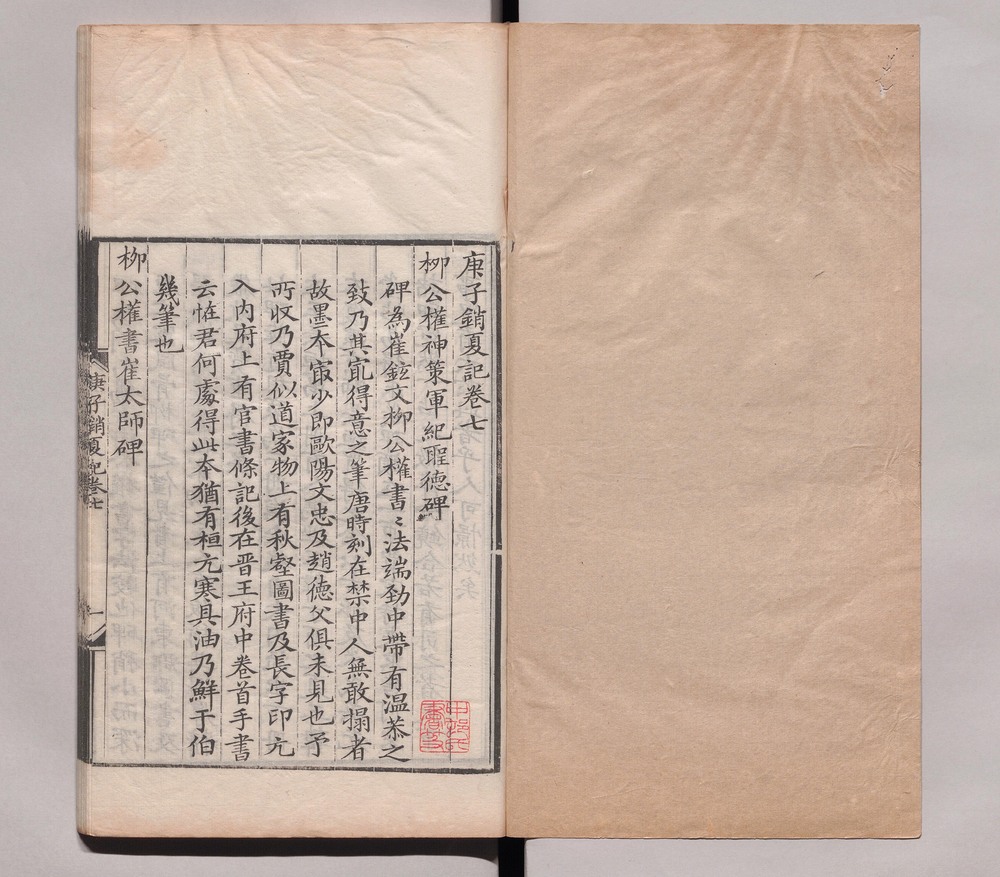 庚子銷夏記卷七
柳公權神策軍紀聖德碑
碑為崔鉉文柳公權書〻法端勁中帶有温恭之
致乃其㝡得意之筆唐時刻在禁中人無敢搨者
故墨本㝡少即歐陽文忠及趙德父俱未見也予
所收乃賈似道家物上有秋壑圖書及長字印元
入内府上有官書條記後在晋王府中卷首手書
云恠君何處得此本猶有桓元寒具油乃鮮于伯
幾筆也
柳公權書崔太師碑
庚子銷夏記卷七